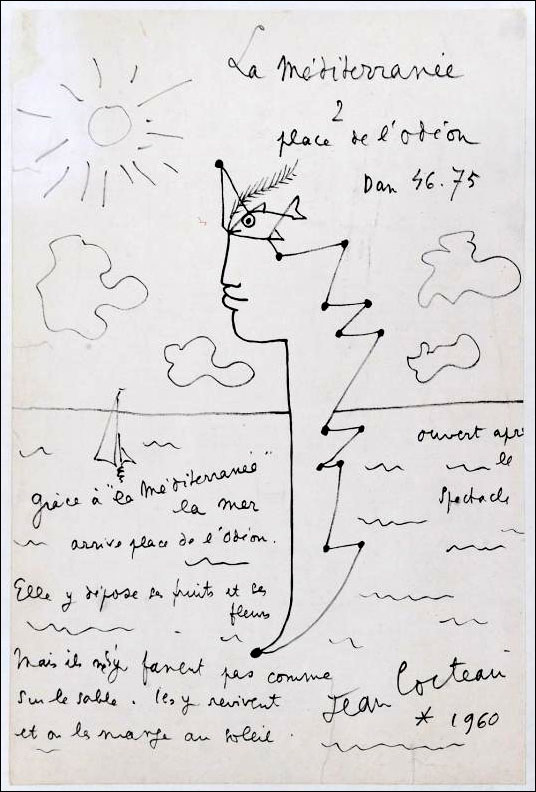 La Méditerranée
2
place de l'Odéon
Dan 46.75
ouvert apr
le
spectacle
Grâce à "la Méditerranée"
la mer
arrive place de l'Odéon.
Elle y dépose ses fruits et ses
fleurs
Mais ils fanent pas comme
sur le sable. Ils y revivent
et on les mange au soleil.
Jean Cocteau
* 1960